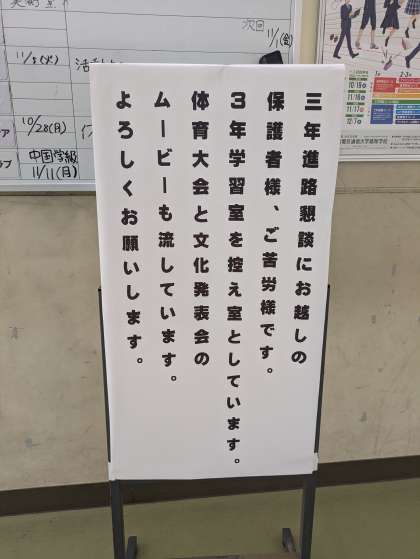 三年進路懇談にお越しの
保護者様、ご苦労様です。
3年学習室を控え室としています。
体育大会と文化発表会の
ムービーも流しています。
よろしくお願いします。
次回
11/1(金)
11/5(火)
10/28(月)
中国学級
11/11(月)
10/19
11/16
11/17
12/7